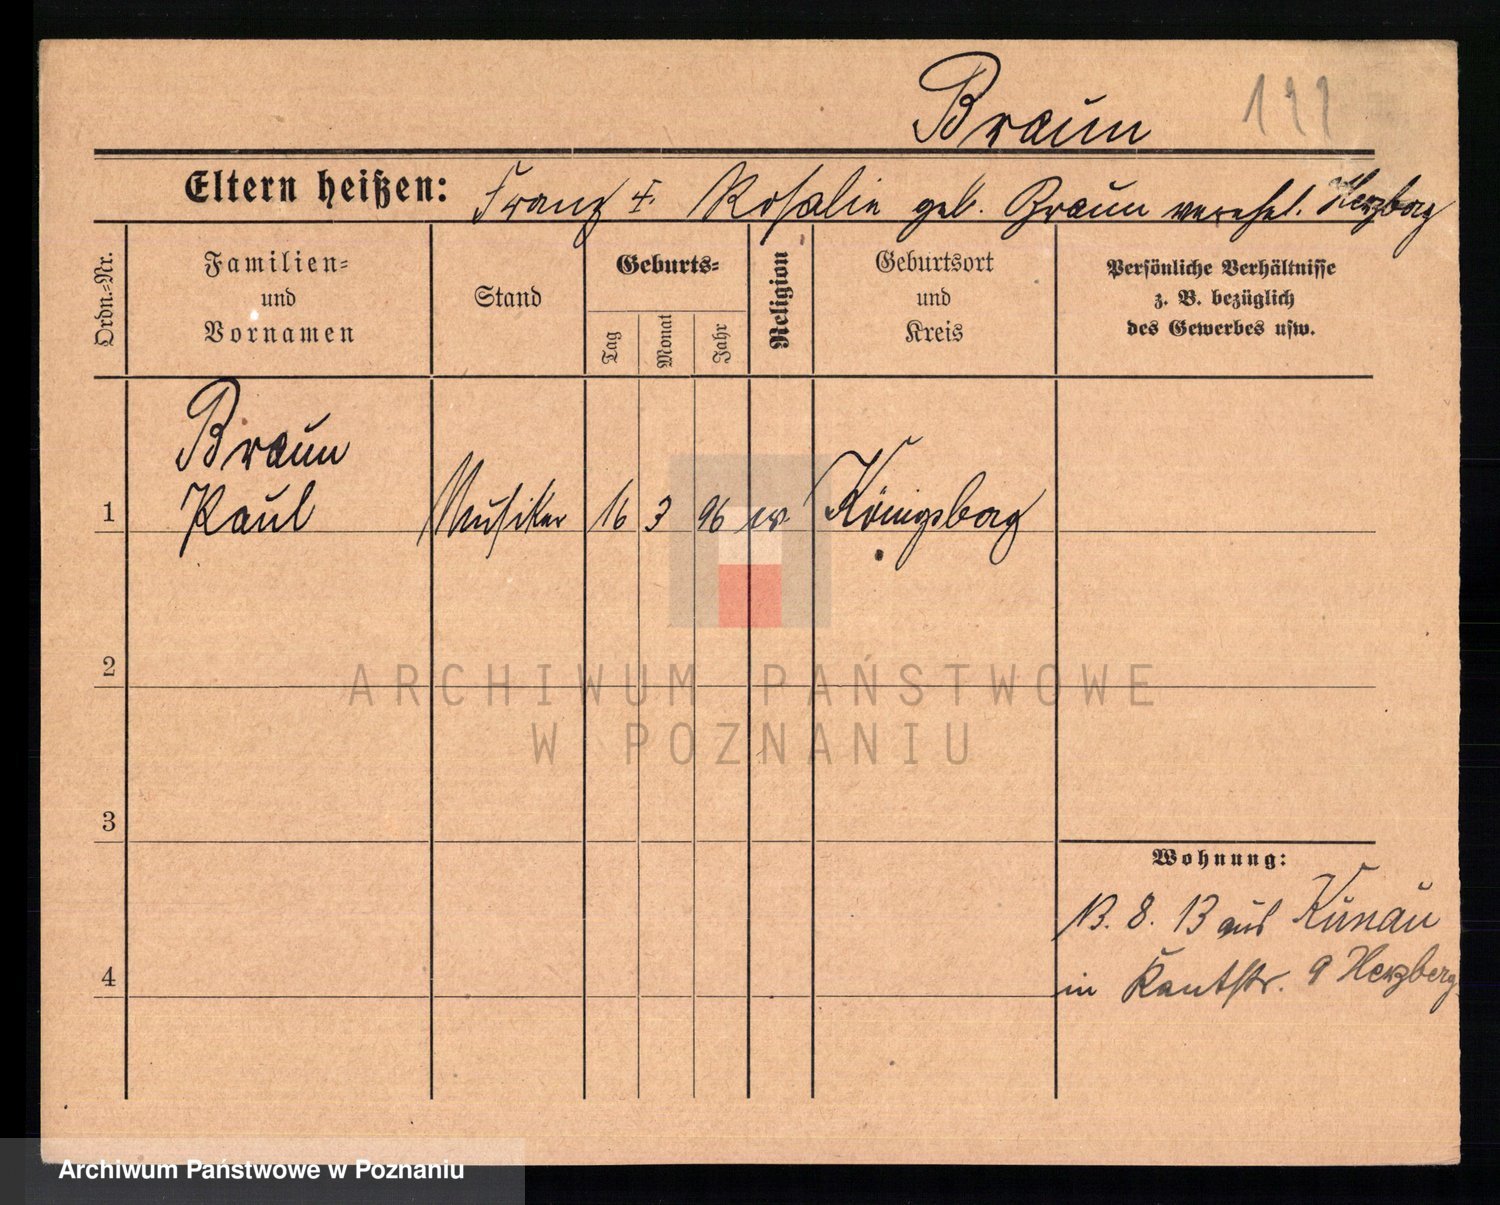 Braun
Eltern heißen: Franz †. Rosalie geb. Braun verehel. Herzberg
Ordn.-Nr.
Familien- und Vornamen
Stand
Geburts-
Tag
Monat
Jahr
Religion
Geburtsort und Kreis
Persönliche Verhältnisse
z. B. bezüglich
des Gewerbes usw.
Braun
1 Paul Musiker 16 3 96 ev Königsberg
2
3
4
Wohnung:
13. 8. 13 aus Kunau
in Kantstr. 9 Herzberg
ARCHIWUM PAŃSTWOWE
W POZNANIU
Archiwum Państwowe w Poznaniu